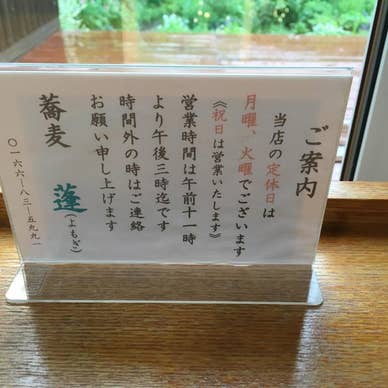 ご案内
当店の定休日は
月曜、火曜でございます
《祝日は営業いたします》
営業時間は午前十一時
より午後三時迄です
時間外の時はご連絡
お願い申し上げます
蕎麦 蓬(よもぎ)
〇一六六ー八三ー五九九一